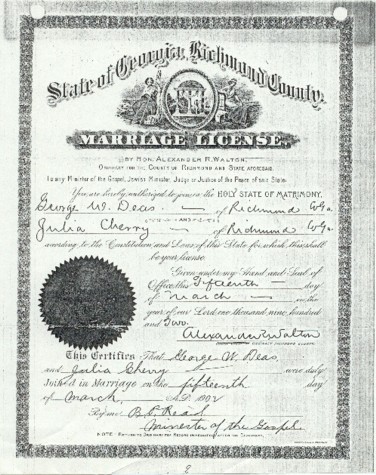 State of Georgia, Richmond County.
MARRIAGE LICENSE.
BY HON. ALEXANDER R. WALTON,
ORDINARY FOR THE COUNTY OF RICHMOND AND STATE AFORESAID.
To any Minister of the Gospel, Jewish Minister, Judge or Justice of the Peace of said State.
You are hereby authorized to join in the HOLY STATE OF MATRIMONY,
George W. Deas of Richmond Co Ga
Julia Cherry of Richmond Co Ga
according to the Constitution and Laws of this State for which this shall
be your license.
Given under my Hand and Seal of
Office this Fifteenth day
of March in the
year of our Lord one thousand nine hundred
and Two.
Alexander R. Walton
This Certifies That George W. Deas
and Julia Cherry were duly
Joined in Marriage on the fifteenth day
of March, A.D. 1902
By me
Minister of the Gospel
NOTE